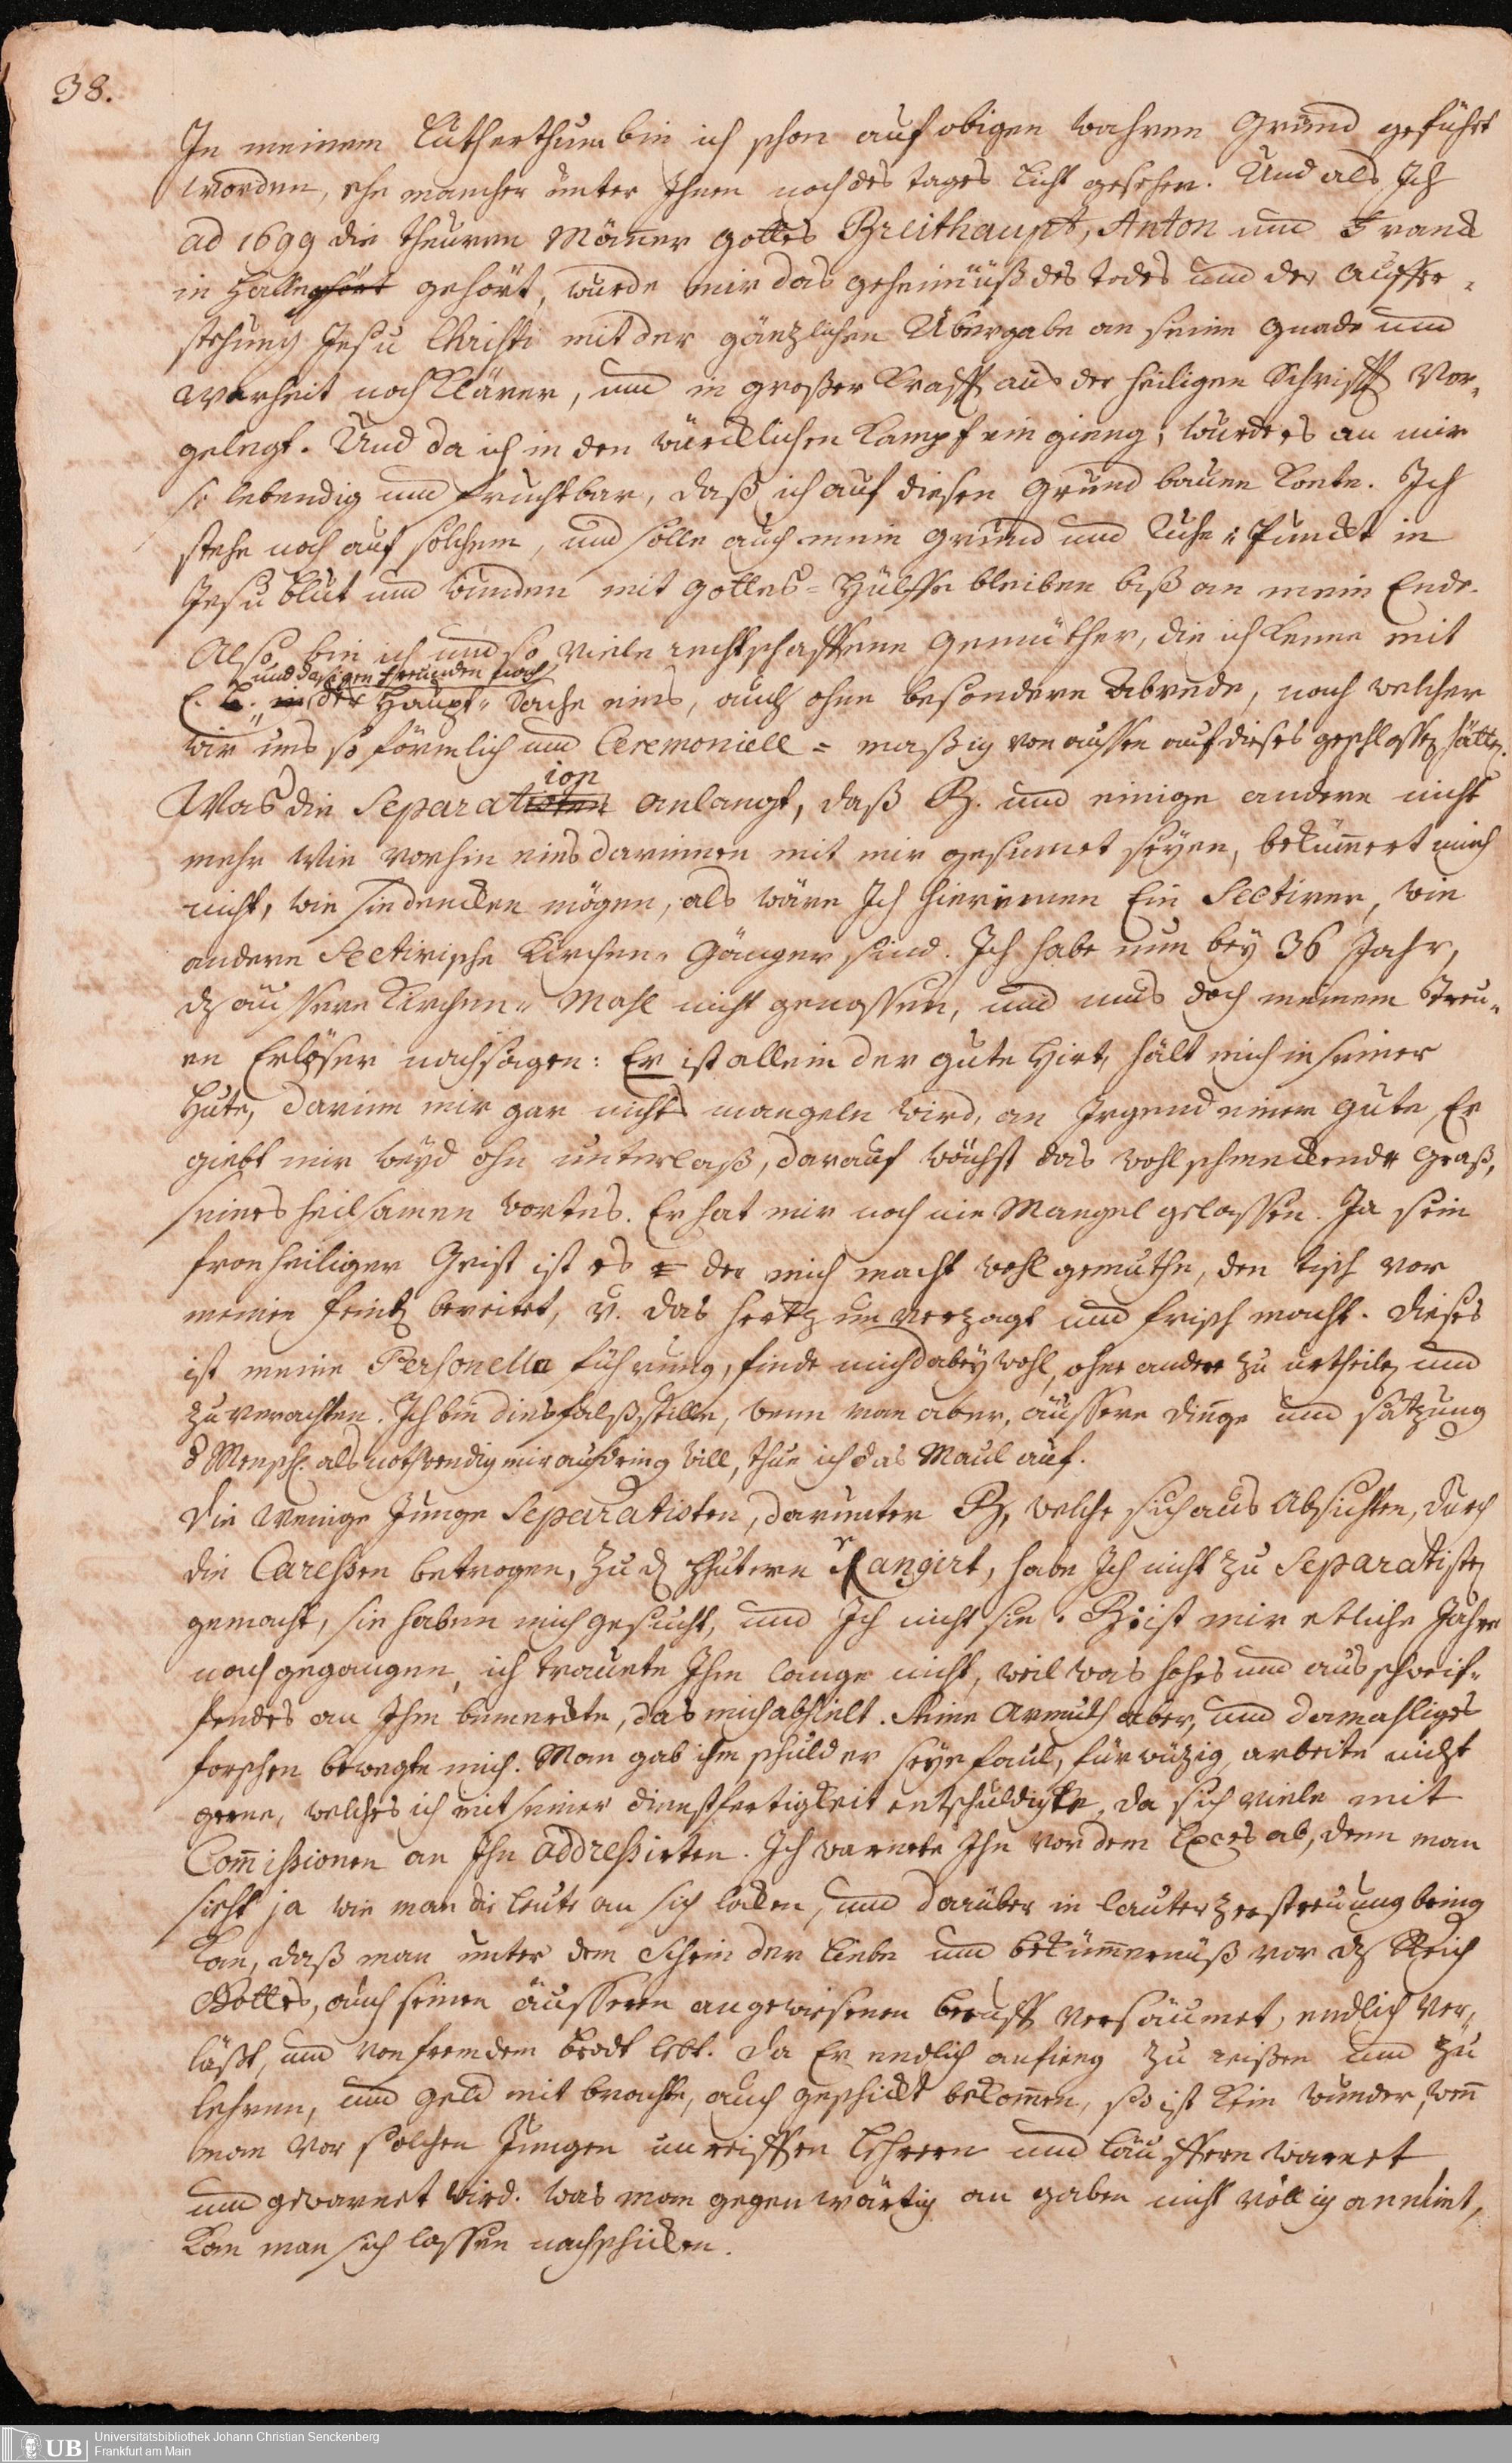 38.
In meinem Lutherthum bin ich schon auf obigen wahren Grund geführt
worden, ehe mancher unter Ihnen noch des tages Licht gesehen. Und als Ich
ad 1699 die theuren Männer Gottes Breithaupt, Anton und Franck
in Halle gehört gehört, wurde mir das geheimnüß des todes und der Auffer-
stehung Jesu Christi mit der gänzlichen Übergabe an seine Gnade und
Warheit noch klärer, und in großer Krafft aus der heiligen Schrifft Vor-
gelegt. Und da ich in den würcklichen Kampf ein gieng, wurde es an mir
so lebendig und fruchtbar, daß ich auf diesen Grund bauen konte. Ich
stehe noch auf solchem, und solle auch mein Grund und Ruhe-Punckt in
Jesu blut und wunden mit Gottes-Hülffe bleiben biß an mein Ende.
Also bin ich und so viele rechtschaffene Gemüther, die ich kenne mit
und dasigen freunden nach
E. L. in der Haupt-Sache eins, auch ohne besondere Abrede, nach welcher
wir uns so förmlich und Ceremoniell-maßig von aussen auf dieses geschlossen hätten.
ion
Was die Separatisten anlangt, daß B. und einige andere nicht
mehr wie vorhin eins darinnen mit mir gesinnet seyen, bekümmert mich
nicht, wie sie dencken mögen, als wäre Ich hierinnen Ein Sectirer, wie
andere Sectirische Kirchen-Gänger sind. Ich habe nun bey 36 Jahr,
das äussere Kirchen-Mahl nicht genossen, und muß doch meinem Treu-
en Erlöser nachsagen: Er ist allein der gute Hirt, hält mich in seiner
Hute, darinn mir gar nichts mangeln wird, an Irgend einem Gute, Er
giebt mir weyd ohn unterlaß, darauf wächst das wohlschmeckende Graß,
seines heilsamen Wortes. Er hat mir noch nie Mangel gelassen. Ja sein
fron heiliger Geist ist es der mich macht wohlgemuthe, den tisch vor
meinen feinden bereitet, u. das Hertz unverzagt und frisch macht. Dieses
ist meine Personelle führung, finde mich dabey wohl, ohne andere zu urtheilen und
zu verachten. Ich bin diesfalß stille, wenn man aber, äussere dinge und satzung
der Mensch. als nothwendig mir aufdring will, thue ich das Maul auf.
Die wenige Junge Separatisten, darunter B, welche sich aus Absichten, durch
die Caressen betrogen, zu den Hhutern rangirt, habe Ich nicht zu Separatisten
gemacht, sie haben mich gesucht, und Ich nicht sie. B. ist mir etliche Jahre
nachgegangen, ich trauete Ihm lange nicht, weil was hohes und ausschweif-
fendes an Ihm bemerckte, das mich abhielt. Seine Armuth aber, und damahliges
forschen bewegte mich. Man gab ihm schuld er seye faul, fürwitzig, arbeite nicht
gerne, welches ich mit seiner dienstfertigkeit entschuldigte, da sich viele mit
Commissionen an Ihn addressirten. Ich warnete Ihn vor dem Exces ab, denn man
sieht ja wie man die Leute an sich locken, und darüber in lauter zerstreuung bring
kan, daß man unter dem Schein der Liebe und bekümmernüß vor das Reich
Gottes, auch seinen äusseren angewiesenen beruff versäumet, endlich ver-
läßt, und von fremdem brodt lebt. Da Er endlich anfieng zu reißen und zu
lehren, und Geld mit brachte, auch geschickt bekommen, so ist kein wunder, wenn
man vor solchen Jungen unreiffen Lehrern und Läuffern warnet
und gewarnet wird. Was man gegenwärtig an gaben nicht völlig annimt,
kan man sich lassen nachschicken.
UB
Universitätsbibliothek Johann Christian Senckenberg
Frankfurt am Main